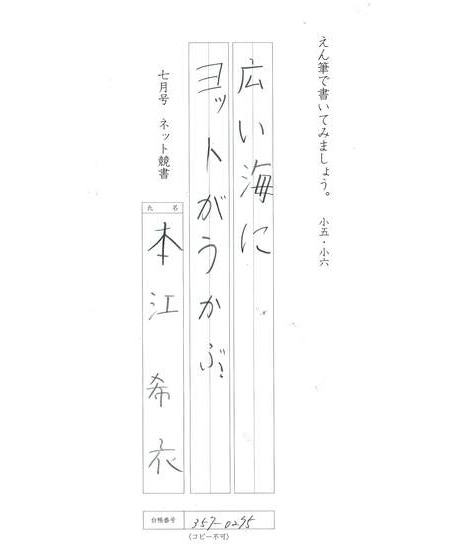 えん筆で書いてみましょう。 小五・小六
広い海に
ヨットがうかぶ
七月号 ネット競書
氏名
本江希衣
台帳番号 357-0295
(コピー不可)